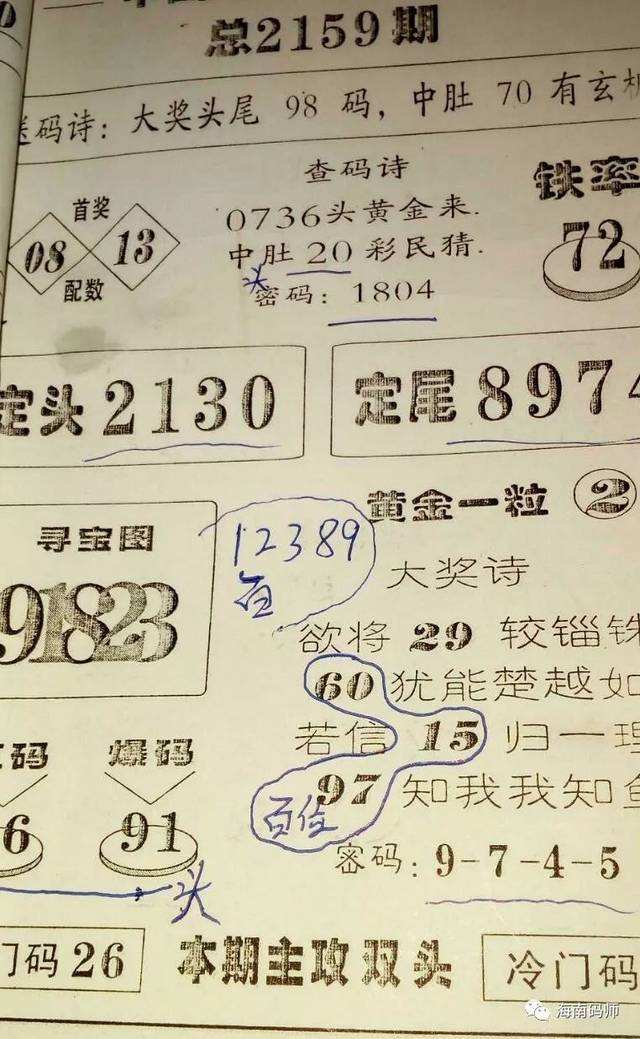 总2159期
送码诗：大奖头尾 98 码，中肚 70 有玄机
查码诗
0736头黄金来.
中肚 20 彩民猜.
头
密码：1804
首奖
08 13
配数
铁率
72
定头 2130
定尾 8974
寻宝图
91823
12389
百
黄金一粒 2
大奖诗
欲将 29 较锱铢
60 犹能楚越如
若信 15 归一理
97 知我我知鱼
百位
密码：9-7-4-5
码 爆码
6 91
头
门码 26
本期主攻双头
冷门码
海南码师